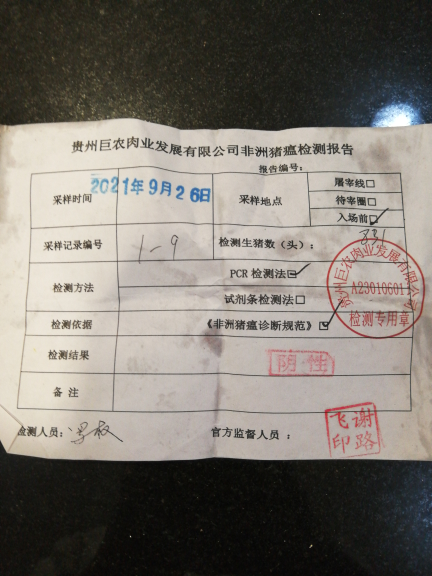 贵州巨农肉业发展有限公司非洲猪瘟检测报告
报告编号：
采样时间 2021年9月26日 采样地点 屠宰线□
待宰圈□
入场前☑
采样记录编号 1-9 检测生猪数（头）： 331
检测方法 PCR 检测法☑
试剂条检测法□
检测依据 《非洲猪瘟诊断规范》☑
检测结果 阴性
备注
检测人员： 官方监督人员：
贵州巨农肉业发展有限公司
A23010601
检测专用章
谢路飞印